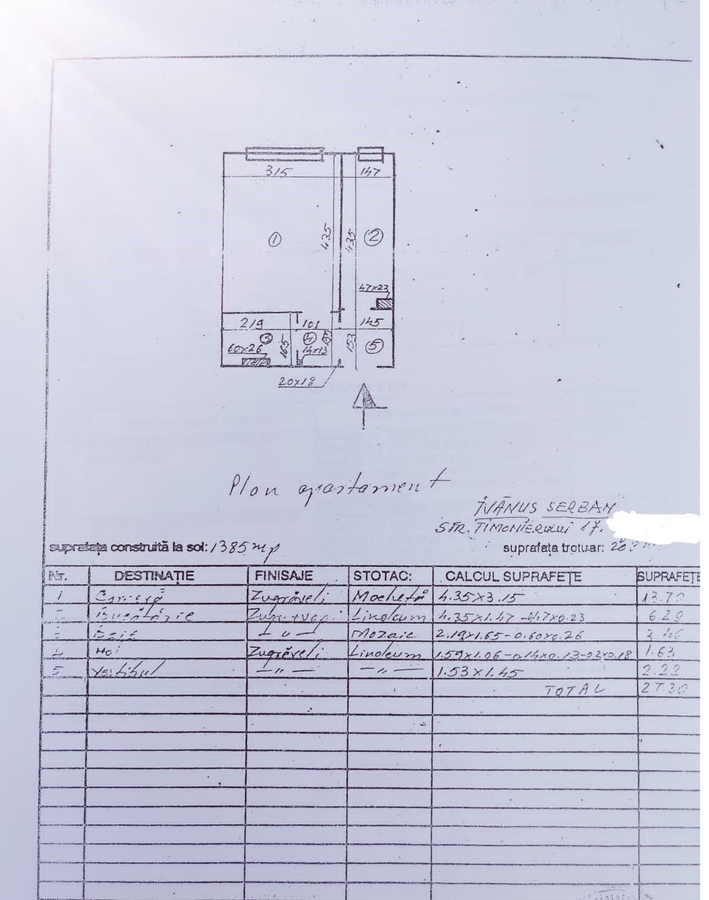 315 147
1 435 435 2
47x23
219 101 145
3 165 4 153 5
60x26 14x13
20x18
Plan apartament
IVĂNUS SERBAN
STR. TIMONIERULUI 17.
suprafața construită la sol: 1385 mp suprafața trotuar:
Nr. DESTINAȚIE FINISAJE STOTAC: CALCUL SUPRAFEȚE SUPRAFEȚE
1 Cameră Zugrăveli Mochetă 4.35x3.15 13.70
Bucătărie Zugrăveli Linoleum 4.35x1.47-0.47x0.23 6.29
Baie —„— Mozaic 2.19x1.65-0.60x0.26
4 Hol Zugrăveli Linoleum 1.59x1.06-0.14x0.13-0.2x0.18 1.63
5 Vestibul —„— —„— 1.53x1.45 2.22
TOTAL 27.30